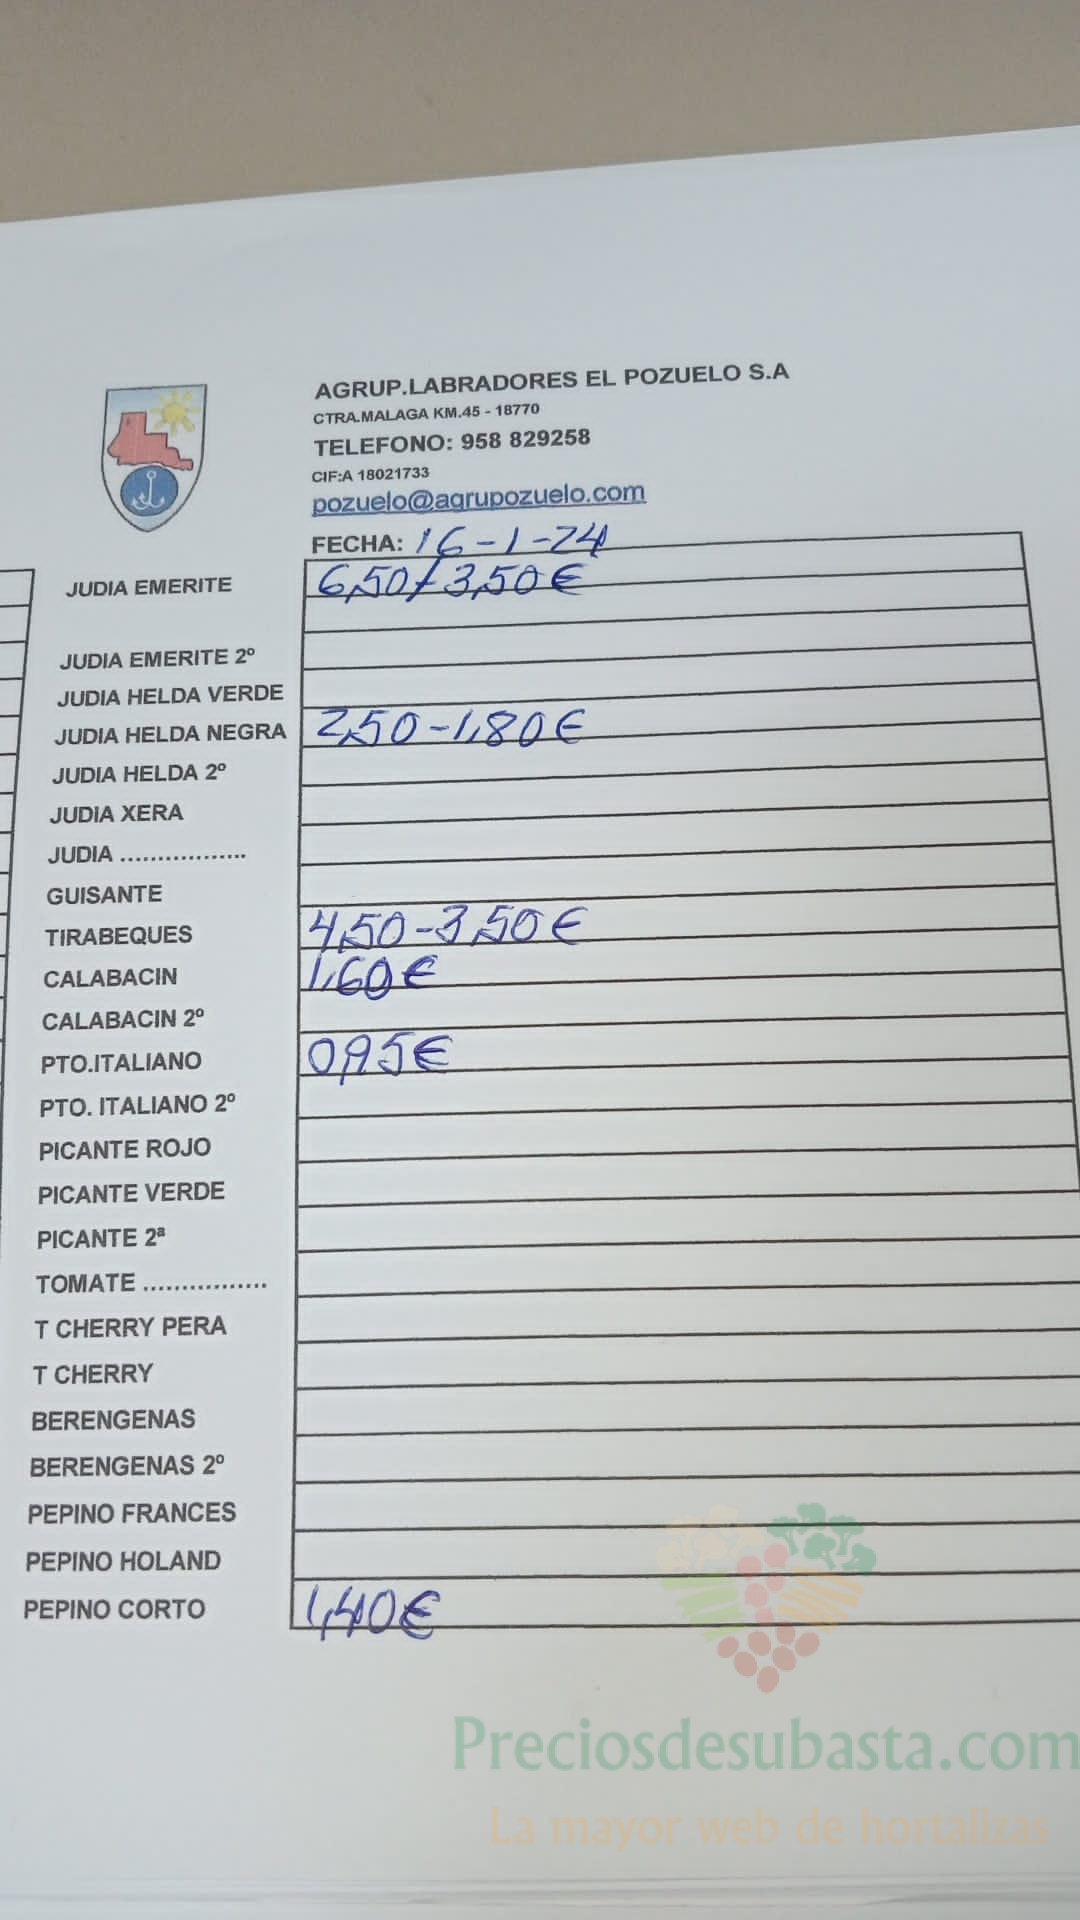 AGRUP.LABRADORES EL POZUELO S.A
CTRA.MALAGA KM.45 - 18770
TELEFONO: 958 829258
CIF:A 18021733
pozuelo@agrupozuelo.com
FECHA: 16-1-24
JUDIA EMERITE 6,50/3,50€
JUDIA EMERITE 2º
JUDIA HELDA VERDE
JUDIA HELDA NEGRA 2,50-1,80€
JUDIA HELDA 2º
JUDIA XERA
JUDIA .................
GUISANTE
TIRABEQUES 4,50-3,50€
CALABACIN 1,60€
CALABACIN 2º
PTO.ITALIANO 0,95€
PTO. ITALIANO 2º
PICANTE ROJO
PICANTE VERDE
PICANTE 2ª
TOMATE ................
T CHERRY PERA
T CHERRY
BERENGENAS
BERENGENAS 2º
PEPINO FRANCES
PEPINO HOLAND
PEPINO CORTO 1,40€
Preciosdesubasta.com
La mayor web de hortalizas